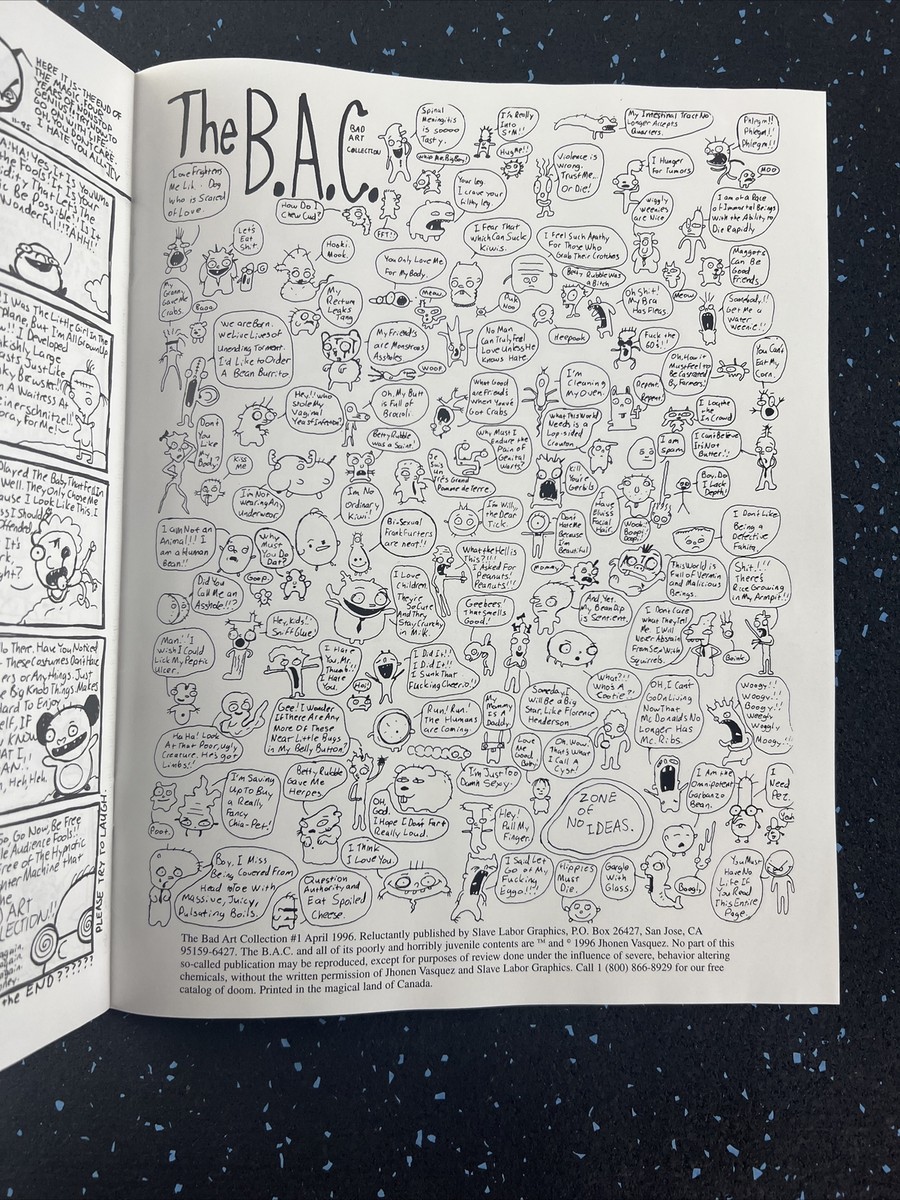 HERE IT IS-THE END OF
THE MAGIC. FOUR
I HATE YOU ALL. JEV
Wonderful!! TAHH!!
I Was The Little Girl In The
Plane, But I'm All Grown Up
Developed
Large
Just Like
A Waitress At
For Me!
Played The Baby That Fed In
Well. They Only Chose Me
I Look Like This. I
I Should
Offended
It's
Have You Noticed
These Costumes Don't Have
ers or Anything. Just
Big Knob Things. Makes
Hard To Enjoy
Heh Heh.
Go, Go Now, Be Free
Audience Fools!!
Free of The Hypnotic
Machine that
ART
LECTION!!
the END?????
PLEASE TRY TO LAUGH.
The B.A.C.
BAD
ART
COLLECTION
Spinal
Meningitis
is soooo
Tasty.
Whip Me, Big Boy!
I'm Really
Into
S+M!!
Hug Me!!
My Intestinal Tract No
Longer Accepts
Quarters.
Phlegm!!
Phlegm!!
Phlegm!!
MOO
Love Frightens
Me Like A Dog
Who is Scared
of Love.
How Do I
Chew Cud?
FFT!!
Your leg.
I crave your
filthy leg.
Violence is
Wrong.
Trust Me...
Or Die!
I Hunger
For Tumors.
wiggly
weenies
are Nice.
I am of a Race
of Immortal Beings
With the Ability to
Die Rapidly
Let's
Eat
Shit.
Hooki
Mook.
You Only Love Me
For My Body.
I Fear That
which Can Suck
Kiwis.
I Feel Such Apathy
For Those Who
Grab Their Crotches
Maggots
Can Be
Good
Friends.
My
Granny
Gave Me
Crabs.
Baaa
My
Rectum
Leaks
Tang
Meow
Puk
Noo
Betty Rubble was
a Bitch
Oh Shit!
My Bra
Has Fleas.
Meow
Somebody!!
Get Me a
Water
Weenie!!
We are Born.
We Live Lives of
Unending Torment.
I'd Like to Order
A Bean Burrito
My Friends
are Monstrous
Assholes
WOOF
No Man
Can Truly Feel
Love Unless He
Knows Hate.
Heepook
Fuck the
60's!!
Oh, How it
Must feel to
Be Castrated
By Farmers!
You Can't
Eat My
Corn.
Don't
You
Like
My
Body?
Hey!! Who
Stole My
Vaginal
Yeast Infection?
Oh, My Butt
is Full of
Brocoli.
What Good
are Friends
When You've
Got Crabs
I'm
Cleaning
My Oven.
Repent.
Repent.
I Loathe
the
In Crowd
Kiss
Me
Betty Rubble
Was a Saint
Je
Suis Un
Très Grand
Pomme de Terre.
Why Must I
Endure the
Pain of
Genital
Warts?
What This World
Needs is a
Lop-sided
Crouton
I am
Spam
I Can't Believe
It's Not
Butter!!
I'm Not
Wearing Any
Underwear
I'm No
Ordinary
Kiwi!
I'm Will,
the Dear
Tick.
Kill
Your
Gerbils
I
Have
Bliss
Facial
Hair.
Boy, Do
I Lack
Depth!
I am Not an
Animal!! I
am a Human
Bean!!
Why
Must
You Do
Dat?
Bi-Sexual
Frankfurters
are neat!!
Don't
Hate Me
Because
I'm
Beautiful
Woob.
Doop!
Doop!
I Don't Like
Being a
Defective
Fahita.
Did You
Call Me an
Asshole!!?
Goop.
I Love
Children.
They're
So Cute
And They
Stay Crunchy
in Milk.
What the Hell is
This?!!!
I Asked For
Peanuts!
Peanuts!!!
Mommy
This World is
Full of Vermin
and Malicious
Beings.
Shit..!!!
There's
Rice Growing
in My Armpit!!
Hey, Kids!
Sniff Glue!
Geebees!
That Smells
Good!
And, Yet.
My Bean Dip
is Sentient.
I Don't Care
What They Tell
Me. I Will
Never Abstain
From Sex With
Squirrels.
Boink.
Man!! I
Wish I Could
Lick My Peptic
Ulcer.
I Hate
You, Mr.
Thumb!!
I Hate
You.
Hoi!
I Did It!!
I Did It!!
I Sunk That
Fucking Cheerio!!
What?!!
Who's A
Cootie?!
Ha Ha! Look
At That Poor, Ugly,
Creature. He's got
Limbs!!
Gee! I Wonder
If There Are Any
More Of These
Neat Little Bugs
in My Belly Button?
Run! Run!
The Humans
are Coming
My
Mommy
Is A
Daddy.
Someday I
Will Be a Big
Star, Like Florence
Henderson
Love
Me
Good,
Baby.
Oh, Wow.
That's What
I Call A
Cyst!
OH, I Can't
Go On Living
Now That
McDonalds No
Longer Has
Mc.Ribs.
Woogy!!
Woogy!!
Boogy!!
Weegly
Woogly
Moogy!!
Poot.
I'm Saving
Up To Buy
a Really
Fancy
Chia-Pet!
Betty Rubble
Gave Me
Herpes
OH,
God.
I Hope I Don't Fart
Really Loud.
I'm Just Too
Damn Sexy.
Hey!
Pull My
Finger.
ZONE
OF
NO IDEAS.
I Am the
Omnipotent
Garbanzo
Bean.
I
Need
Pez.
Yah
Boy, I Miss
Being Covered From
Head to Toe With
Massive, Juicy,
Pulsating Boils.
I Think
I Love You.
Question
Authority and
Eat Spoiled
Cheese.
I Said Let
Go of My
Fucking
Eggo!!!
Hippies
Must
Die.
Gargle
With
Glass.
Boogly
You Must
Have No
Life If
You Read
This Entire
Page.
The Bad Art Collection #1 April 1996. Reluctantly published by Slave Labor Graphics, P.O. Box 26427, San Jose, CA
95159-6427. The B.A.C. and all of its poorly and horribly juvenile contents are ™ and © 1996 Jhonen Vasquez. No part of this
so-called publication may be reproduced, except for purposes of review done under the influence of severe, behavior altering
chemicals, without the written permission of Jhonen Vasquez and Slave Labor Graphics. Call 1 (800) 866-8929 for our free
catalog of doom. Printed in the magical land of Canada.